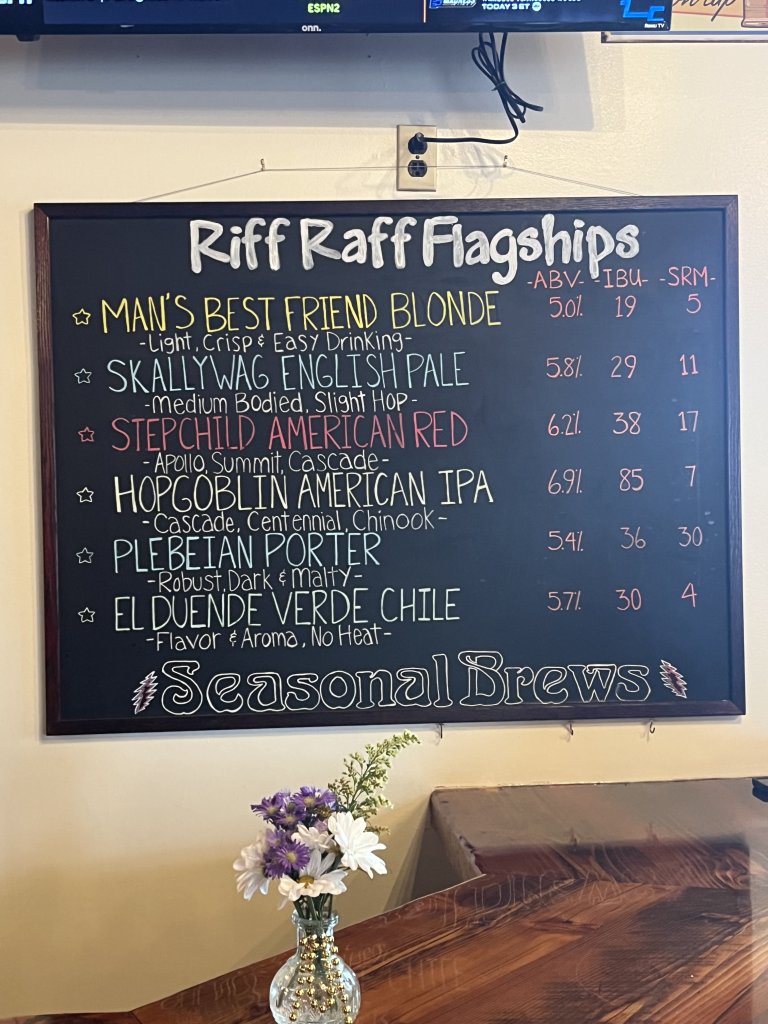 ESPN2
TODAY 5 ET
onn.
Roku TV
Riff Raff Flagships
-ABV- -IBU- -SRM-
MAN'S BEST FRIEND BLONDE 5.0% 19 5
-Light, Crisp & Easy Drinking-
SKALLYWAG ENGLISH PALE 5.8% 29 11
-Medium Bodied, Slight Hop-
STEPCHILD AMERICAN RED 6.2% 38 17
-Apollo, Summit, Cascade-
HOPGOBLIN AMERICAN IPA 6.9% 85 7
-Cascade, Centennial, Chinook-
PLEBEIAN PORTER 5.4% 36 30
-Robust, Dark & Malty-
EL DUENDE VERDE CHILE 5.7% 30 4
-Flavor & Aroma, No Heat-
Seasonal Brews